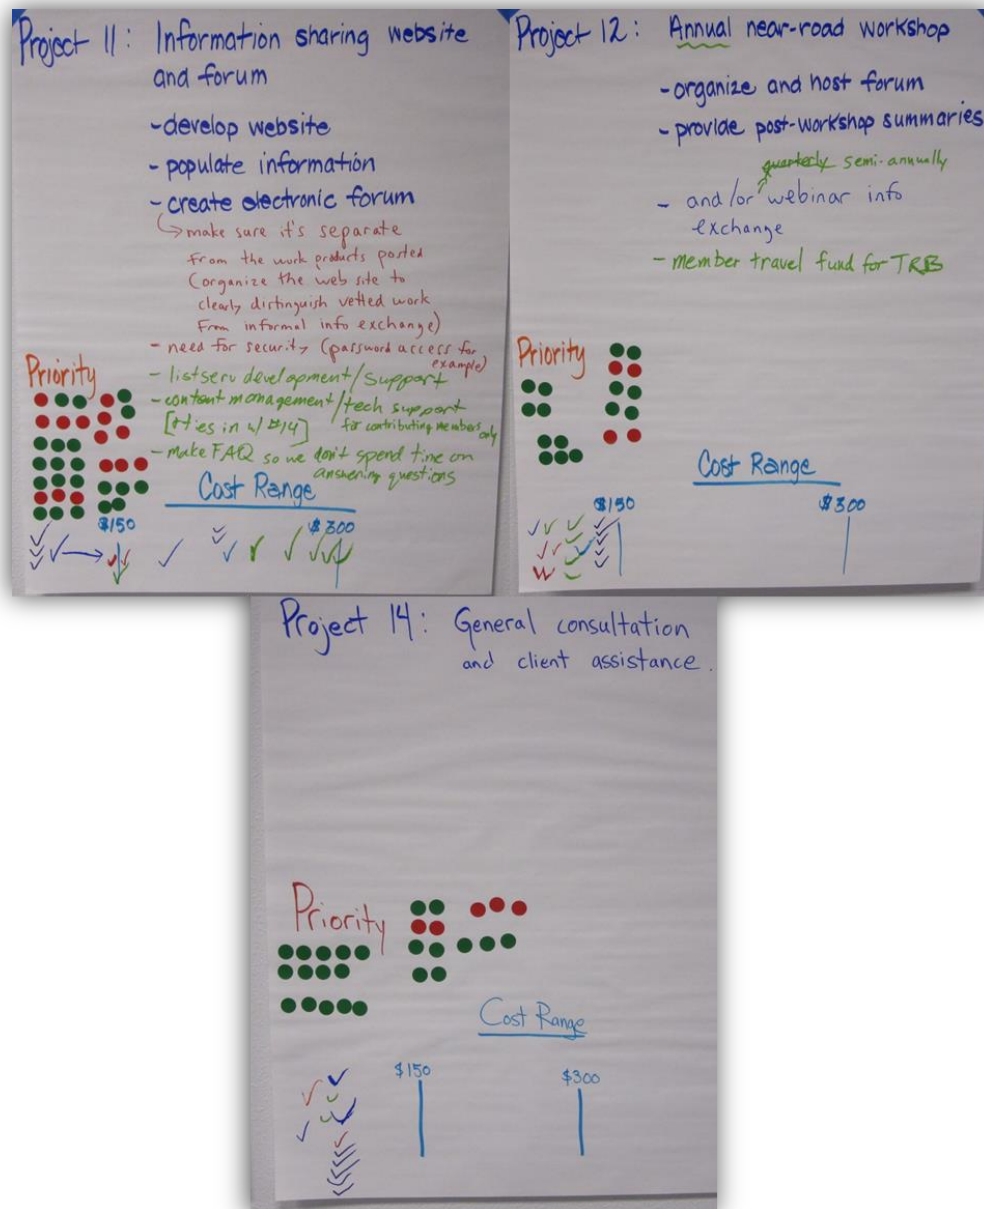 Project 11: Information sharing website
and forum
-develop website
- populate information
- create electronic forum
make sure it's separate
From the work products posted
(organize the web site to
clearly distinguish vetted work
From informal info exchange)
- need for security (password access for
example)
- listserv development/support
- content management/tech support
for contributing members only
[ties in w/ #14]
- make FAQ so we don't spend time on
answering questions
Priority
Cost Range
$150
$300
Project 12: Annual near-road workshop
- organize and host forum
- provide post-workshop summaries
quarterly semi-annually
- and/or webinar info
exchange
- member travel fund for TRB
Priority
Cost Range
$150
$300
Project 14: General consultation
and client assistance.
Priority
Cost Range
$150
$300